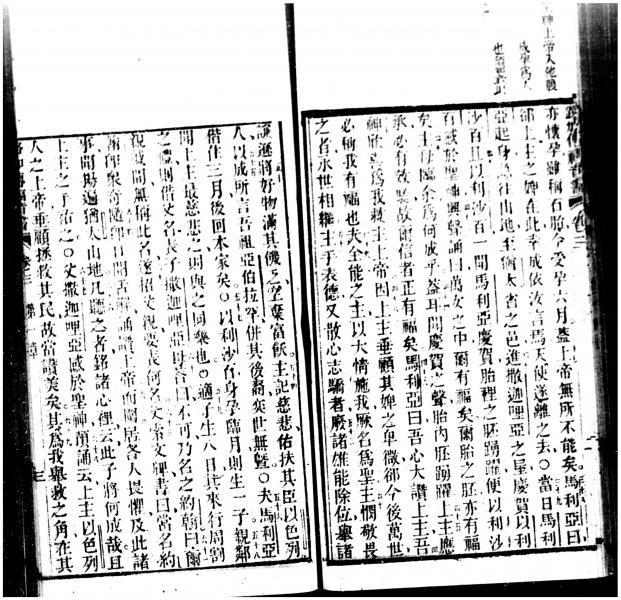 神上帝入他腹
成孕為人
也
路加傳福音書 卷三
亦懷孕雖稱石胎今受孕六月蓋上帝無所不能矣馬利亞曰
卻上主之婢在此幸成依汝言焉天使遂離之去○當日馬利
亞起身急往山地至猶太省之邑進撒迦哩亞之屋慶賀以利
沙百且以利沙百一聞馬利亞慶賀胎裡之胚踴躍便以利沙
百感於聖神興聲誦曰萬女之中爾有福矣爾胎之胚亦有福
矣主母臨余為何成乎蓋耳聞慶賀之聲胎內胚踴躍上主應
承必有效驗故爾信者正有福矣馬利亞曰吾心大讚上主吾
神欣喜為我救主上帝因上主垂顧其婢之卑微卻今後萬世
必稱我有福也夫全能之主以大情施我厥名為聖主憫敬畏
之者永世相繼主于表德又散心志驕者廢諸雄能除位舉諸
謙遜將好物滿其饑乏空棄富飫主記慈悲佑扶其臣以色列
人以成所言吾祖亞伯拉罕併其後裔奕世無曁○夫馬利亞
偕住三月後回本家矣○以利沙百身孕臨月則生一子親鄰
聞上主最慈悲之則與之同樂也○適子生八日其來行周割
之禮則借父名表子撒迦哩亞母答曰不可乃名之約翰曰爾
親戚間無稱此名遂招父親要表何名父索文牌書曰當名約
翰即眾奇隨即口開舌解誦讚上帝而閭居各人畏懼及此諸
事聞揚遍猶太山地凡聽之者銘諸心俚云此子將何成哉且
上主之手佑之○父撒迦哩亞感於聖神預誦云上主以色列
人之上帝垂顧拯救其民故當讚美矣其為我舉救之角在其
路加傳福音書 卷三 第一章 三